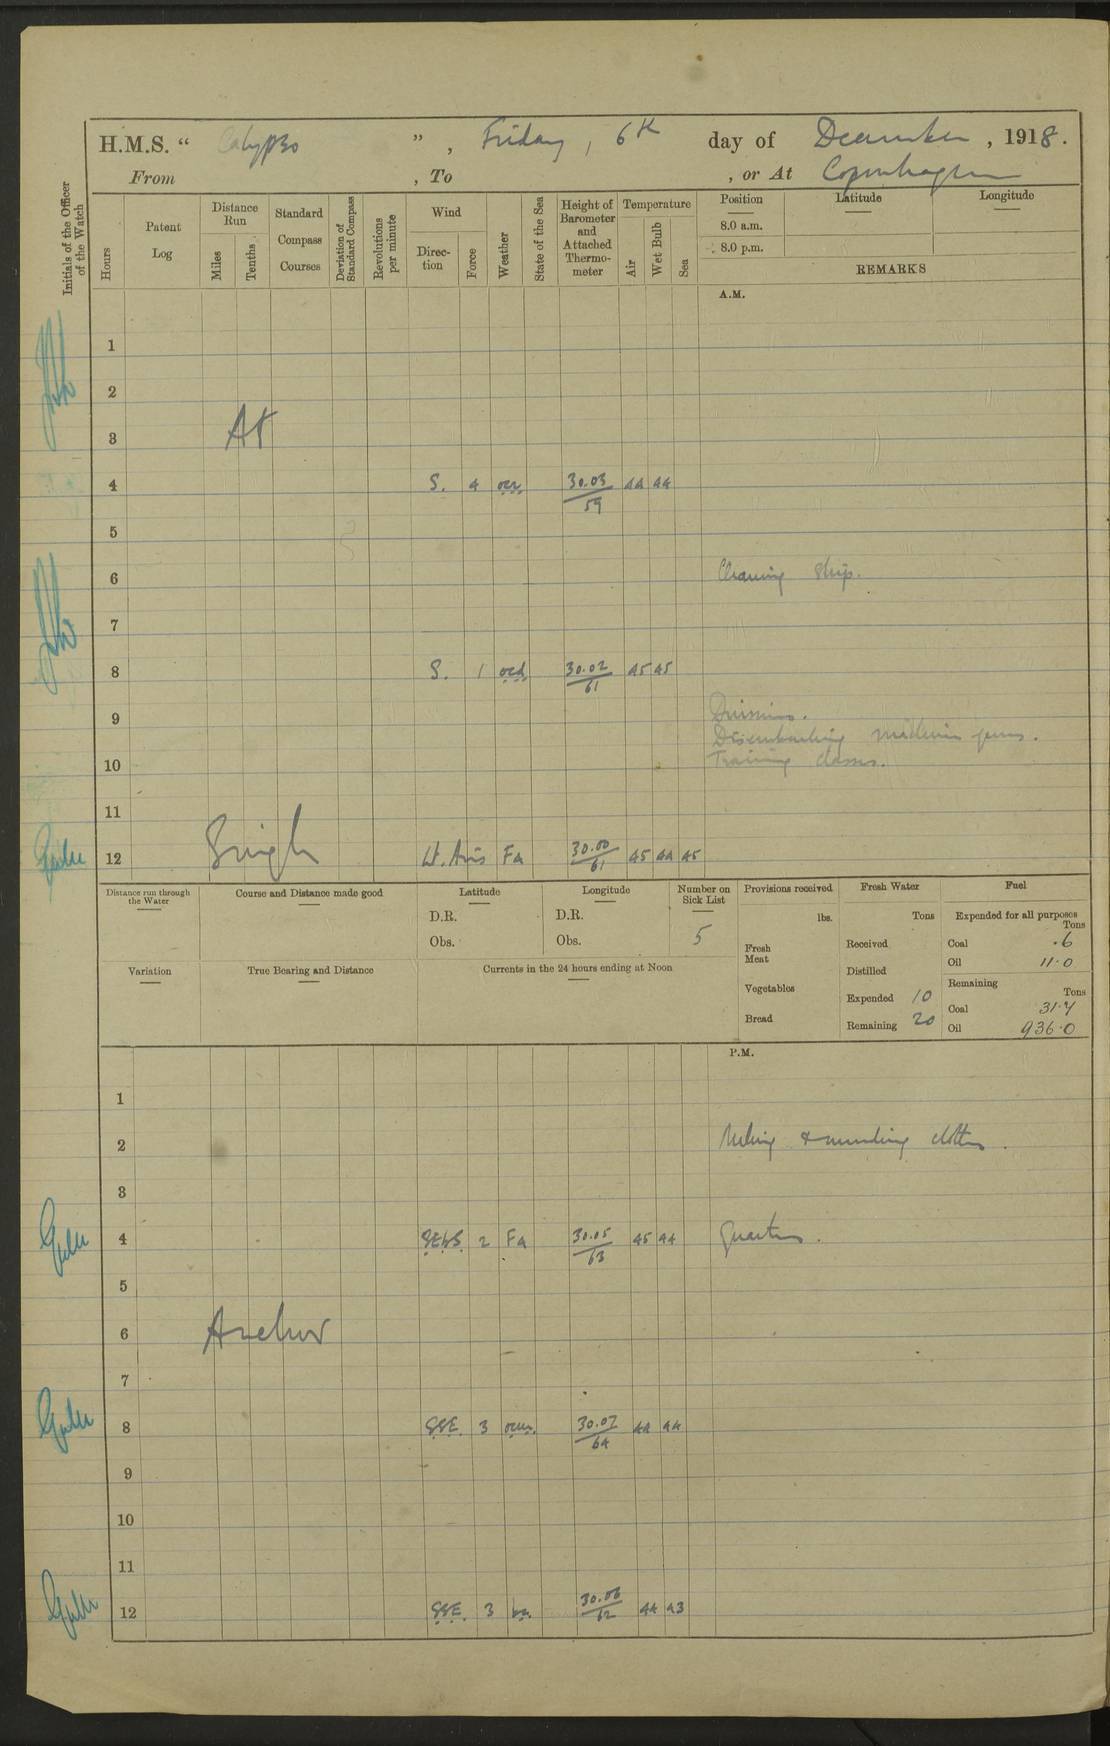 H.M.S. “ Calypso ”, Friday, 6th day of December, 1918.
From , To , or At Copenhagen
Initials of the Officer of the Watch
Hours
Patent Log
Distance Run
Miles
Tenths
Standard Compass Courses
Deviation of Standard Compass
Revolutions per minute
Wind
Direction
Force
Weather
State of the Sea
Height of Barometer and Attached Thermometer
Temperature
Air
Wet Bulb
Sea
Position Latitude Longitude
8.0 a.m.
8.0 p.m.
REMARKS
A.M.
1
2
3 At
4 S. 4 30.03/59 44 44
5
6 Cleaning Ship.
7
8 S. 1 ocd 30.02/61 45 45
9 Divisions.
Disembarking
10 Training classes.
11
12 Single Lt. Airs 30.00/61 45 44 45
Distance run through the Water
Course and Distance made good
Latitude
D.R.
Obs.
Longitude
D.R.
Obs.
Number on Sick List
5
Provisions received
lbs.
Fresh Meat
Vegetables
Bread
Fresh Water
Tons
Received
Distilled
Expended 10
Remaining 20
Fuel
Expended for all purposes
Tons
Coal .6
Oil 11.0
Remaining
Tons
Coal 31.4
Oil 936.0
Variation
True Bearing and Distance
Currents in the 24 hours ending at Noon
P.M.
1
2 Making & mending clothes.
3
4 SEbS. 2 30.05/63 45 44 Quarters.
5
6 Anchor
7
8 SSE. 3 30.07/64 44 44
9
10
11
12 SSE. 3 30.06/62 44 43